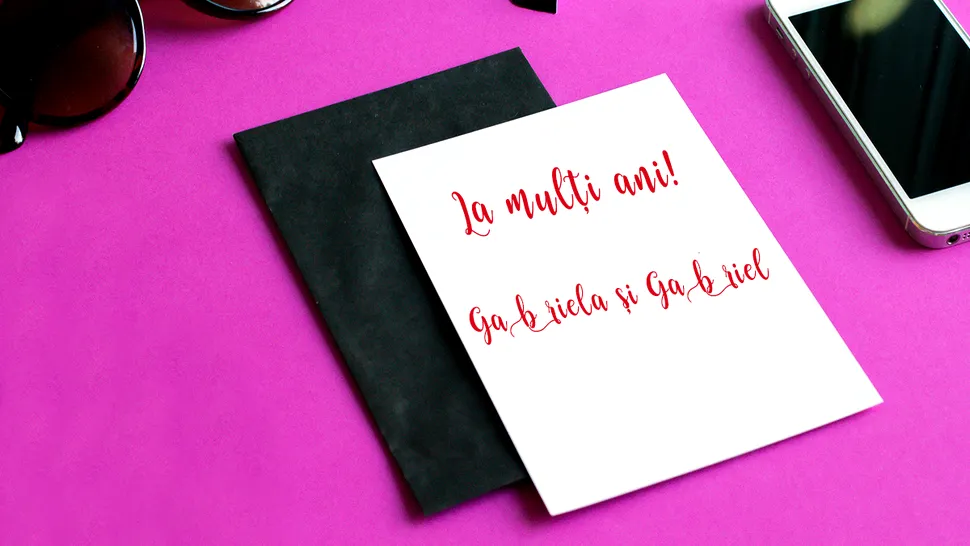 La mulți ani!
Gabriela și Gabriel